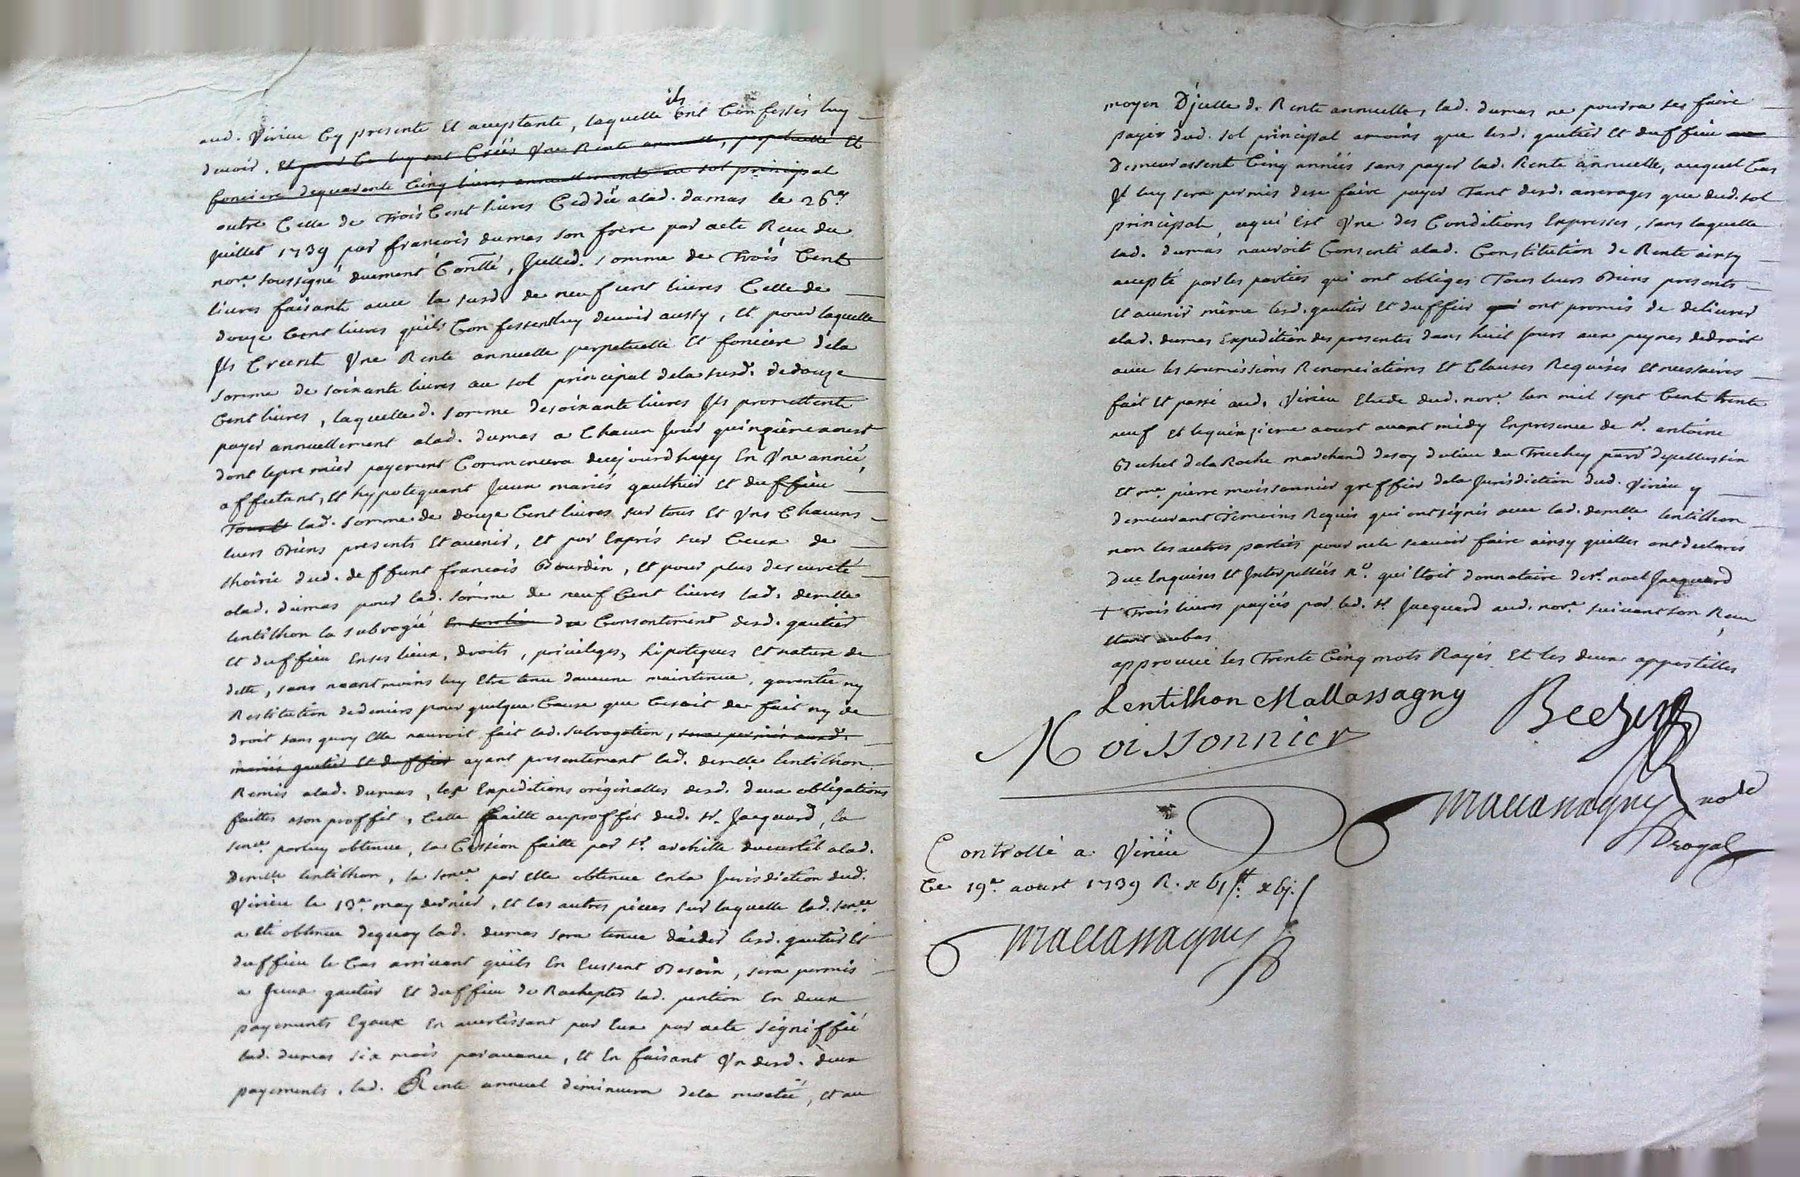 aud. Virieu Cy presente Et aceptante, laquelle ils ont Confessés luy
devoir, Et pour Ce luy ont Créés Vne Rente annuelle, perpetuelle Et
fonciere dequarente Cinq livres annuellement au sol principal
outre Celle de Trois Cent livres Ceddée alad. dumas le 26e.
juillet 1739 par françois dumas son frere par acte Receu du
nore. soussigné duement Contllé, Jcelled. somme de Trois Cent
livres faisante avec la susd. de neuf cent livres Celle de
douze Cent livres quils Confessent luy devoir aussy, Et pour laquelle
Jls Creent Vne Rente annuelle perpetuelle Et fonciere dela
somme de soixante livres au sol principal dela susd. dedouze
Cent livres, laquelled. somme desoixante livres Jls promettent
payer annuellement alad. dumas a Chacun Jour quinzième aoust
dont lepremier payement Commencera decejourdhuy En Vne année,
affectant, Et hypotequant Jceux mariés gauthier Et duffieu
Tout lad. somme de douze Cent livres sur tous Et Vns Chacuns
leurs Biens presents Et avenir, Et par Exprés sur Ceux de
lhoirie dud. deffunt francois Bourdin, Et pour plus deseureté
alad. dumas pour lad. somme de neuf Cent livres lad. demlle
lentilhon la subrogée En son lieu du Consentement desd. gautier
Et duffieu Enses lieux, droits, privileges, hipoteques Et nature de
dette, sans neantmoins luy Etre tenue daucune maintenue, garentie ny
Restitution dedeniers pour quelque Cause que Cesoit de fait ny de
droit sans quoy Elle nauroit fait lad. subrogation, sera permis ausd.
mariés gautier Et duffieu ayant presentement lad. demlle lentilhon
Remis alad. dumas, les Expeditions originalles desd. deux obligations
faittes ason proffit, Celle faitte auproffit dud. sr. Jacquard, la
sence. parluy obtenue, la Cession faitte par sr. achille ducurtil alad.
Demlle lentilhon, la sence. par Elle obtenue Enla Jurisdiction dud.
Virieu le 13e. may dernier, Et les autres pieces sur laquelle lad. sence.
a Eté obtenue dequoy lad. dumas sera tenue daider lesd. gautier Et
duffieu le Cas arrivant quils En Eussent Besoin, sera permis
a Jceux gautier Et duffieu de Rachepter lad. pention En deux
payements Egaux En avertissant par Eux par acte signiffié
lad. dumas six mois paravance, Et En faisant Vn desd. deux
payements, lad. Rente annuel diminuera dela moetié, Et au
moyen D'jcelle d. Rente annuelle, lad. dumas ne pourra ses faire
payer dud. sol principal amoins que lesd. gautier Et duffieu
Demeurassent Cinq années sans payer lad. Rente annuelle, auquel Cas
Jl luy sera permis dese faire payer Tant desd. arrerages que dud. sol
principal, cequi Est Vne des Conditions Expresses, sans laquelle
lad. dumas nauroit Consenti alad. Constitution de Rente ainsy
accepté par les parties qui ont obligés Tous leurs Biens presents
Et avenir même lesd. gautier Et duffieu qui ont promis de delivrer
alad. dumas Expedition des presentes dans huit Jours aux peynes dedroit
avec les soumissions Renonciations Et Clauses Requises Et necessaires
fait Et passé aud. Virieu Etude dud. nore. lan mil sept Cent trente
neuf Et lequinzieme aoust avant midy Enpresence de sr. antoine
Bechet delaRoche marchand desoy dulieu du Truchey parr. depellussin
Et me. pierre moissonnier greffier dela Jurisdiction dud. Virieu y
demeurant Temoins Requis qui ont signés avec lad. demlle lentilhon
non les autres parties pour nele scavoir faire ainsy quelles ont declarés
Due Enquises Et Interpellées R.o qui Etoit donnataire desr. noel Jacquard
+ Trois livres payées par led. sr Jacquard aud. nore. suivant son Receu
Etant aubas
approuvé les Trente Cinq mots Rayés Et les deux appostilles
Lentilhon Mallassagny
Moissonnier
Mallassagny no.re
Royal
Controllé a Virieu
Ce 19e. aoust 1739 R.
Mallassagny